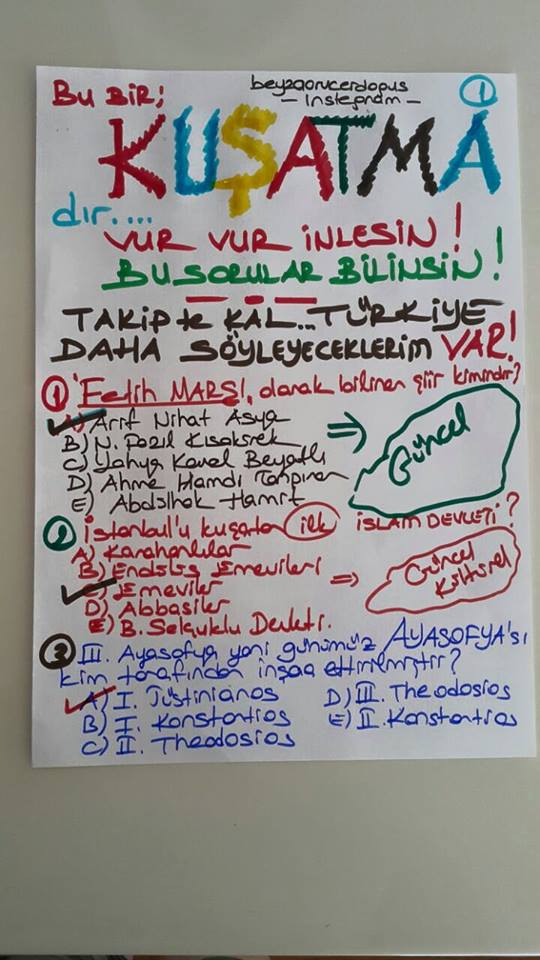 Bu BİR;
beyzaorucerdopus
- İnstegram -
1
KUŞATMA
dır....
VUR VUR İNLESİN!
BU SORULAR BİLİNSİN!
TAKİPte KAL... TÜRKİYE
DAHA SÖYLEYECEKLERİM VAR!
1 'Fetih MARŞI, olarak bilinen şiir kimindir?
A) Arif Nihat Asya
B) N. Fazıl Kısakürek
C) Yahya Kemal Beyatlı
D) Ahme Hamdi Tanpınar
E) Abdülhak Hamit
⇒ Güncel
2 İstanbul'u kuşatan ilk İSLAM DEVLETİ?
A) Karahanlılar
B) Endülüs Emevileri
C) Emeviler
D) Abbasiler
E) B. Selçuklu Devleti.
⇒ Güncel
Kültürel
3 III. Ayasofya yani günümüz AYASOFYA'sı
kim tarafından inşaa ettirilmiştir?
A) I. Jüstinianos
B) I. Konstantios
C) II. Theodosios
D) III. Theodosios
E) II. Konstantios